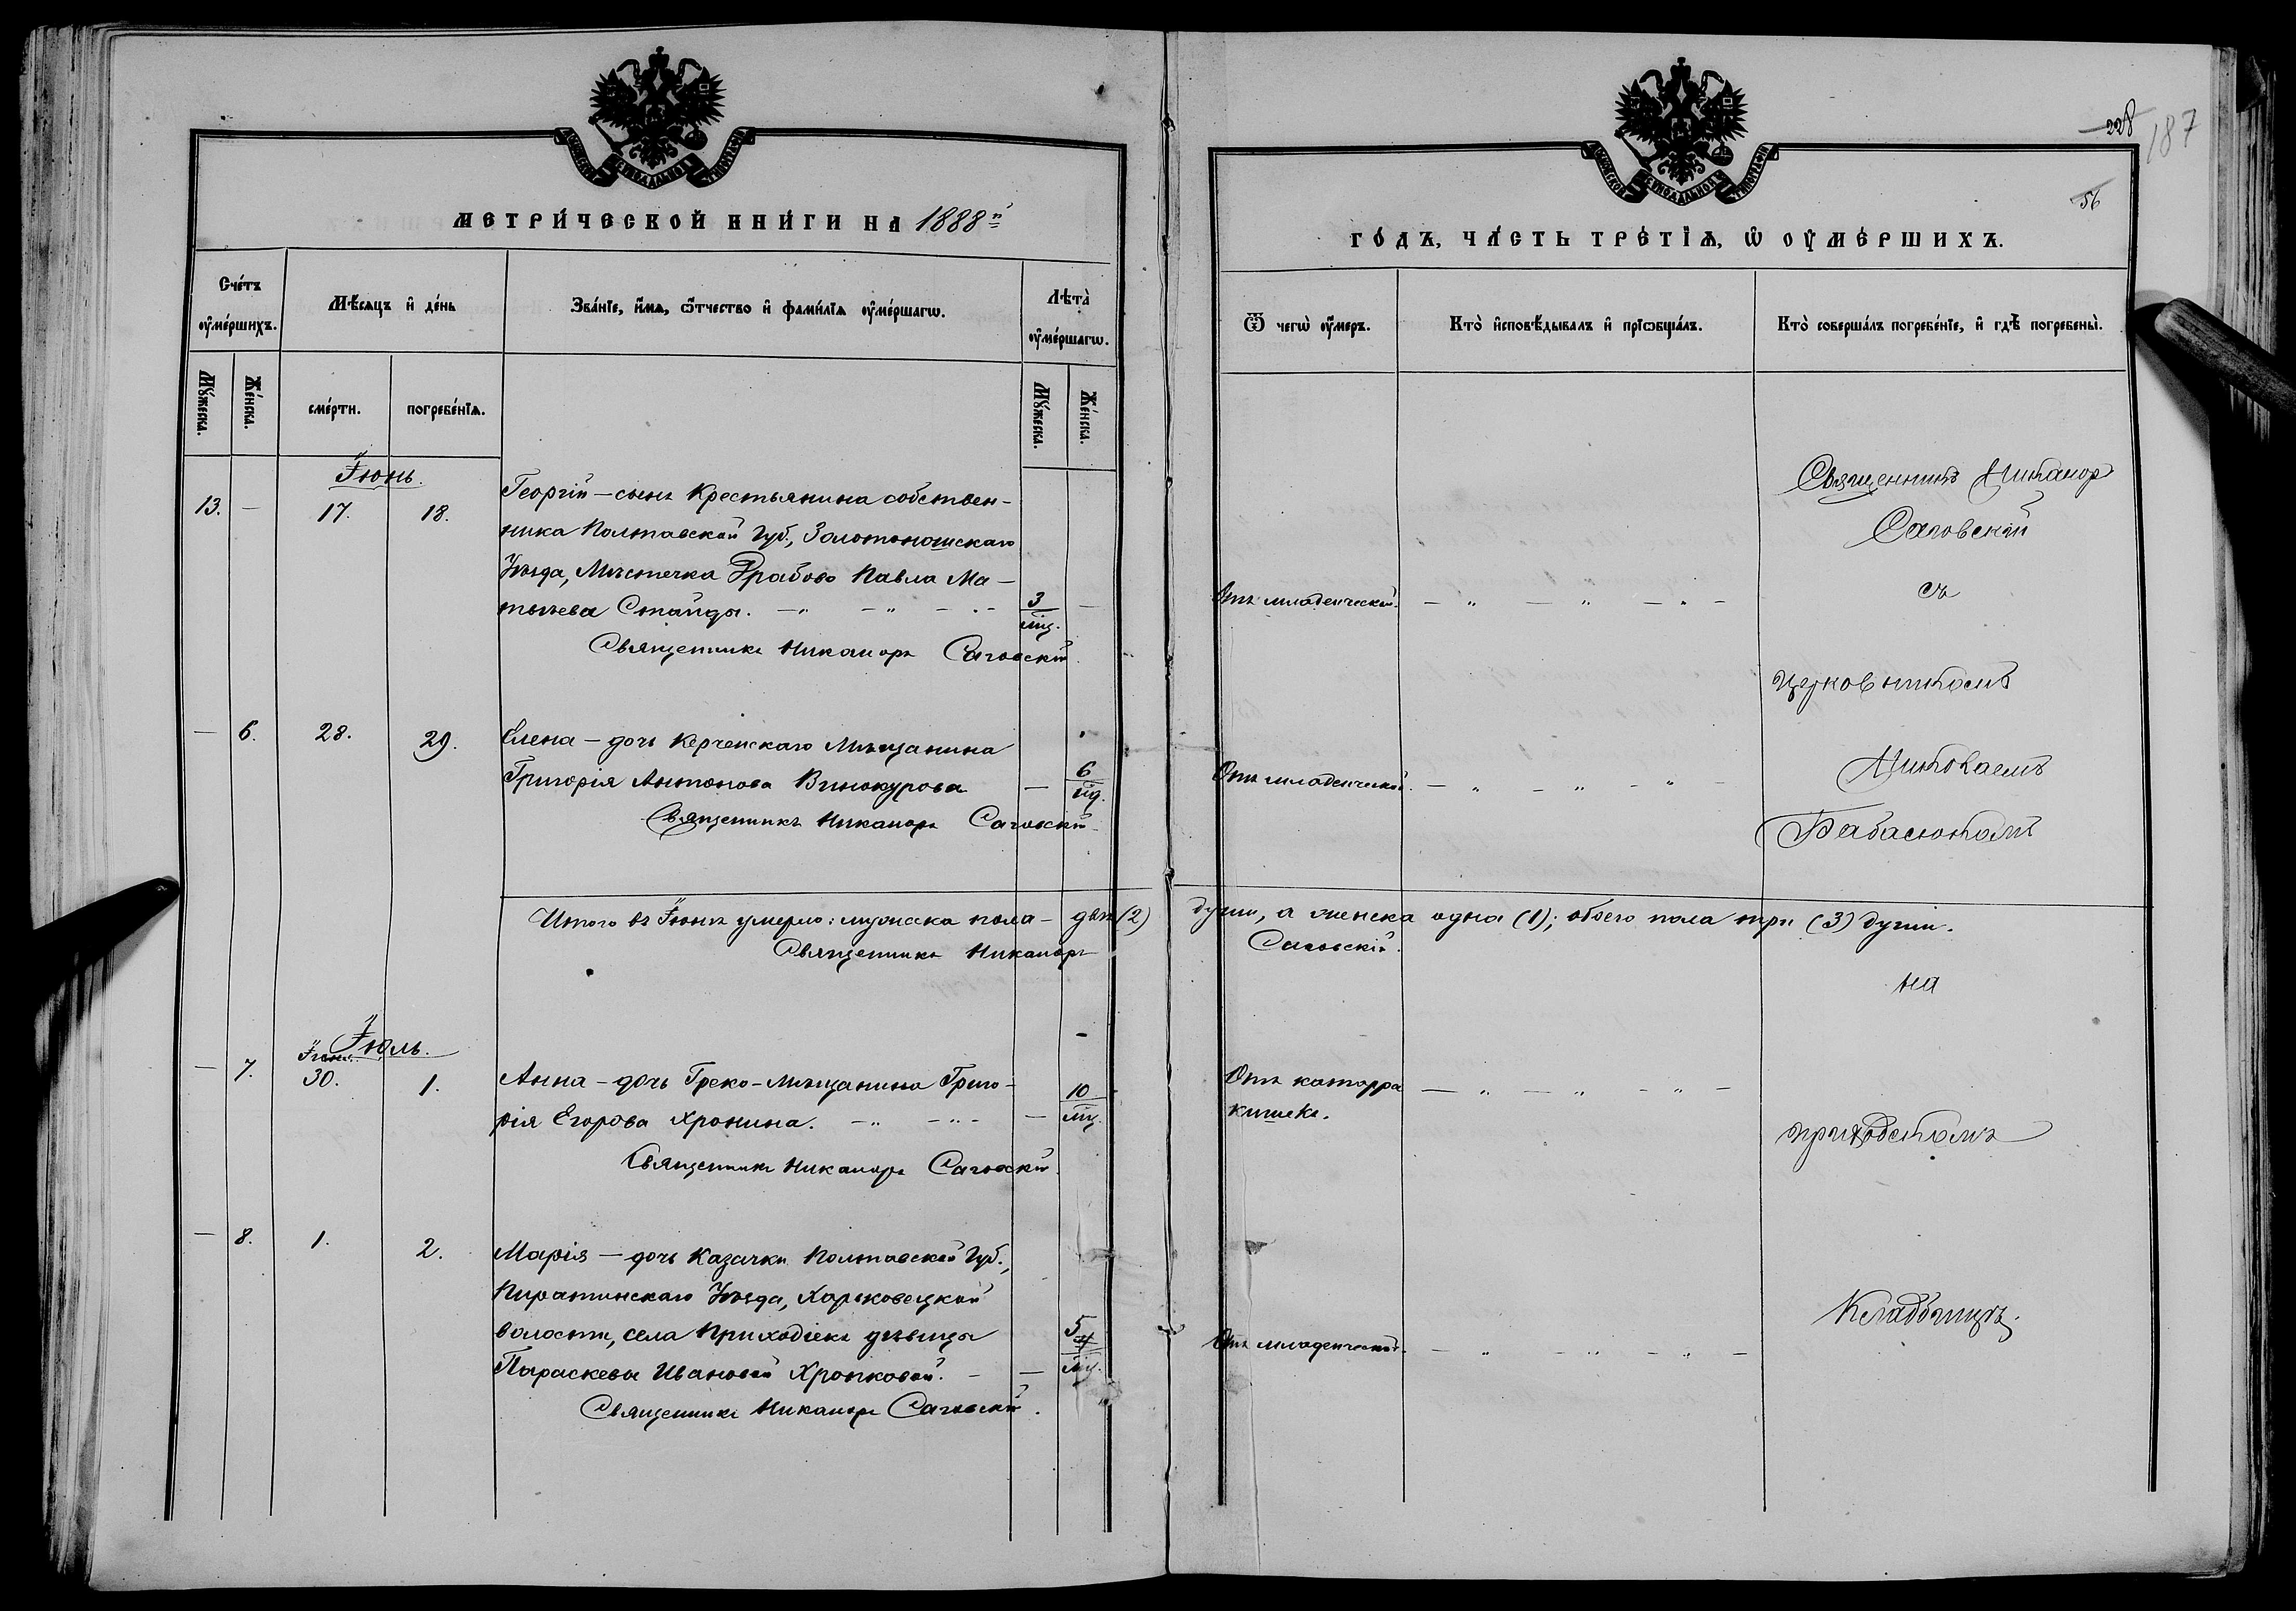 МОСКОВСКОЙ СѴНОДАЛЬНОЙ ТИПОГРАФІИ
МЕТРИ́ЧЕСКОЙ КНИ́ГИ НА 1888й
Сче́тъ ᲂу҆ме́ршихъ.
Мѣ́сяцъ и҆ де́нь
Зва́нїе, и҆́мѧ, ѻ҆́тчество и҆ фамилі́ѧ ᲂу҆ме́ршагѡ.
Лѣта̀ ᲂу҆ме́ршагѡ.
Мꙋ́жеска.
Же́нска.
сме́рти.
погребе́нїѧ.
Мꙋ́жеска.
Же́нска.
Іюнь.
13. — 17. 18.
Георгій — сынъ Крестьянина собствен-
ника Полтавской Губ., Золотоношскаго
Уѣзда, Мѣстечка Драбово Павла Ма-
твѣева Стайды. — " — " — "
3
мц. —
Священникъ Никаноръ Саговскій.
— 6. 28. 29.
Елена — дочь Керченскаго Мѣщанина
Григорія Антонова Винокурова
— 6
мц.
Священникъ Никаноръ Саговскій
Итого въ Іюнѣ умерло: мужска пола — двѣ (2)
Священникъ Никаноръ
Іюль.
Іюн.
— 7. 30. 1.
Анна — дочь Греко-Мѣщанина Григо-
рія Егорова Хронина. — " — " —
— 10
мц.
Священникъ Никаноръ Саговскій.
— 8. 1. 2.
Марія — дочь Казачки Полтавской Губ.,
Пирятинскаго Уѣзда, Харьковецкой
волости, села Приходіекъ дѣвицы
Параскевы Ивановой Хропковой. —
— 5
мц.
Священникъ Никаноръ Саговскій.
228
187
56
МОСКОВСКОЙ СѴНОДАЛЬНОЙ ТИПОГРАФІИ
ГО́ДЪ, ЧА́СТЬ ТРЕ́ТЇѦ, Ѡ҆ ОУ҆МЕ́РШИХЪ.
Ѿ чегѡ̀ ᲂу҆́меръ.
Кто̀ и҆сповѣ́дывалъ и҆ прїѡбща́лъ.
Кто̀ соверша́лъ погребе́нїе, и҆ гдѣ̀ погребены̀.
Священникъ Никанор
Саговскій
Отъ младенческой. — " — " — " —
съ
церковникомъ
Отъ младенческой. — " — " — " —
Николаемъ
Бабасюкомъ
души, а женска одна (1); обоего пола три (3) души.
Саговскій.
на
Отъ катарра
кишекъ.
— " — " — " —
приходскомъ
Отъ младенческой. — " — " — " —
Кладбищѣ.